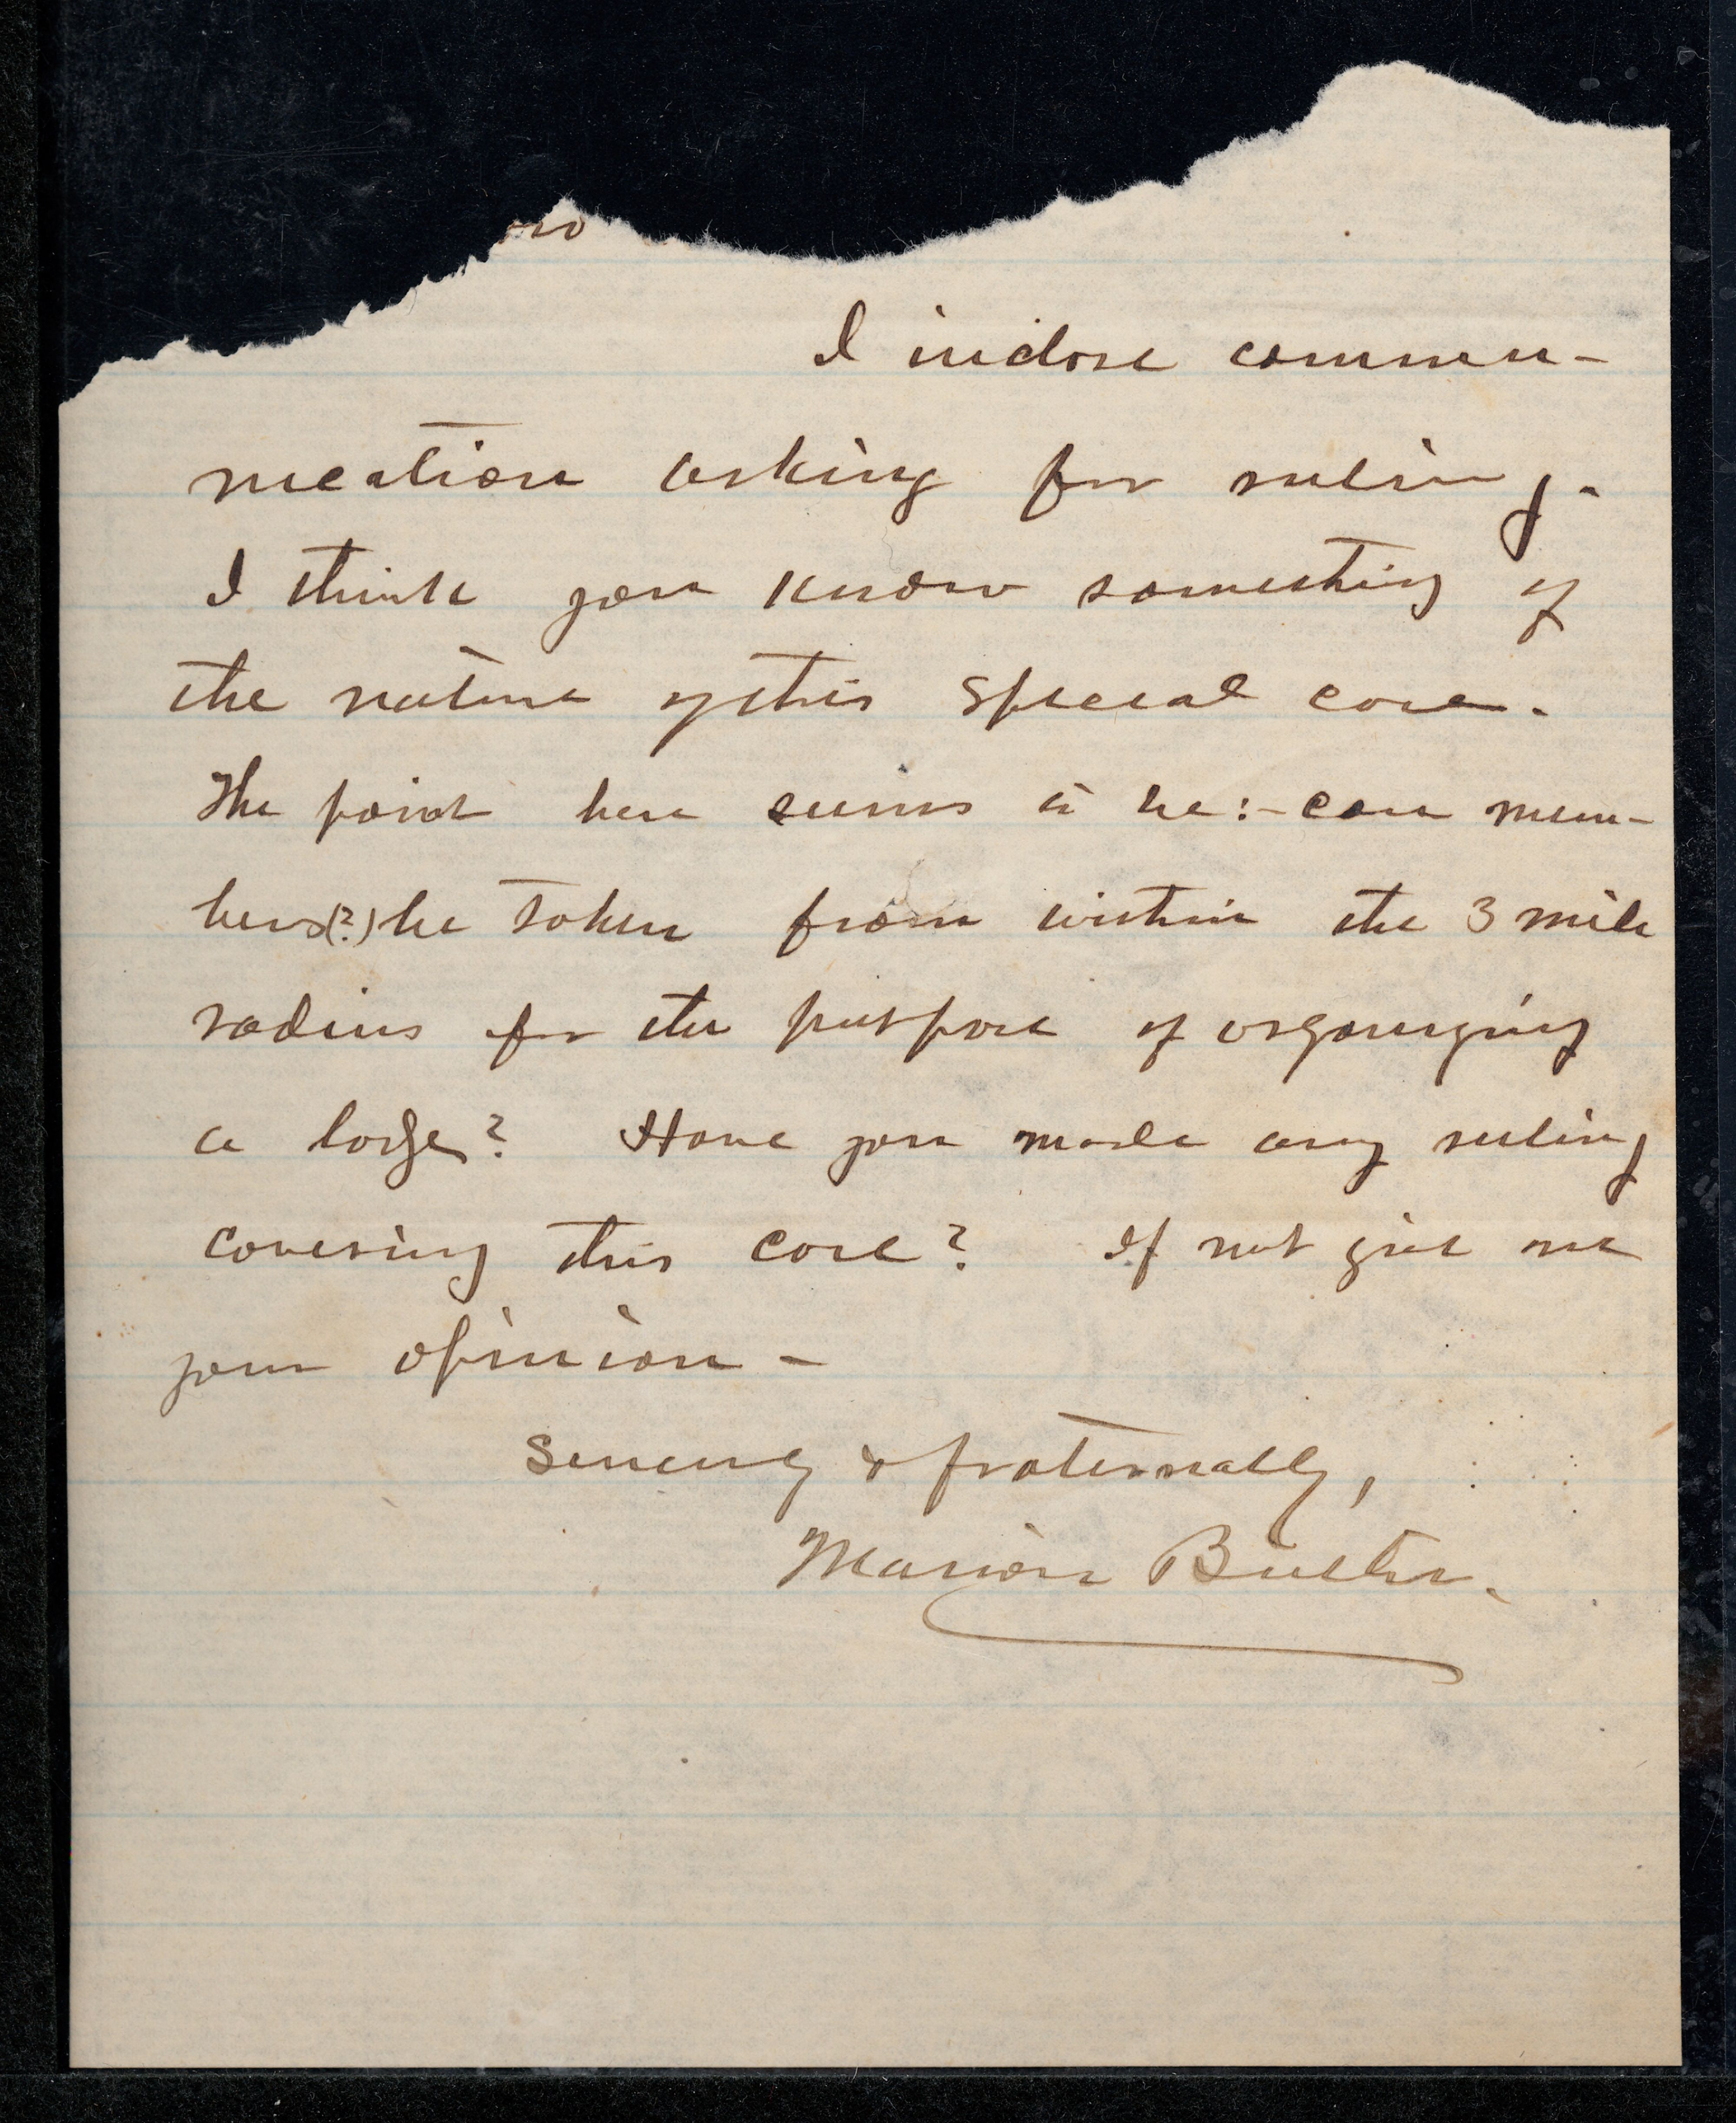 I inclose commu-
nication asking for ruling.
I think you know something of
the nature of this special case.
The point here seems to be:- can mem-
bers(?) be taken from within the 3 mile
radius for the purpose of organizing
a lodge? Have you made any ruling
covering this case? If not give me
your opinion -
Sincerely & fraternally,
Marion Butler.